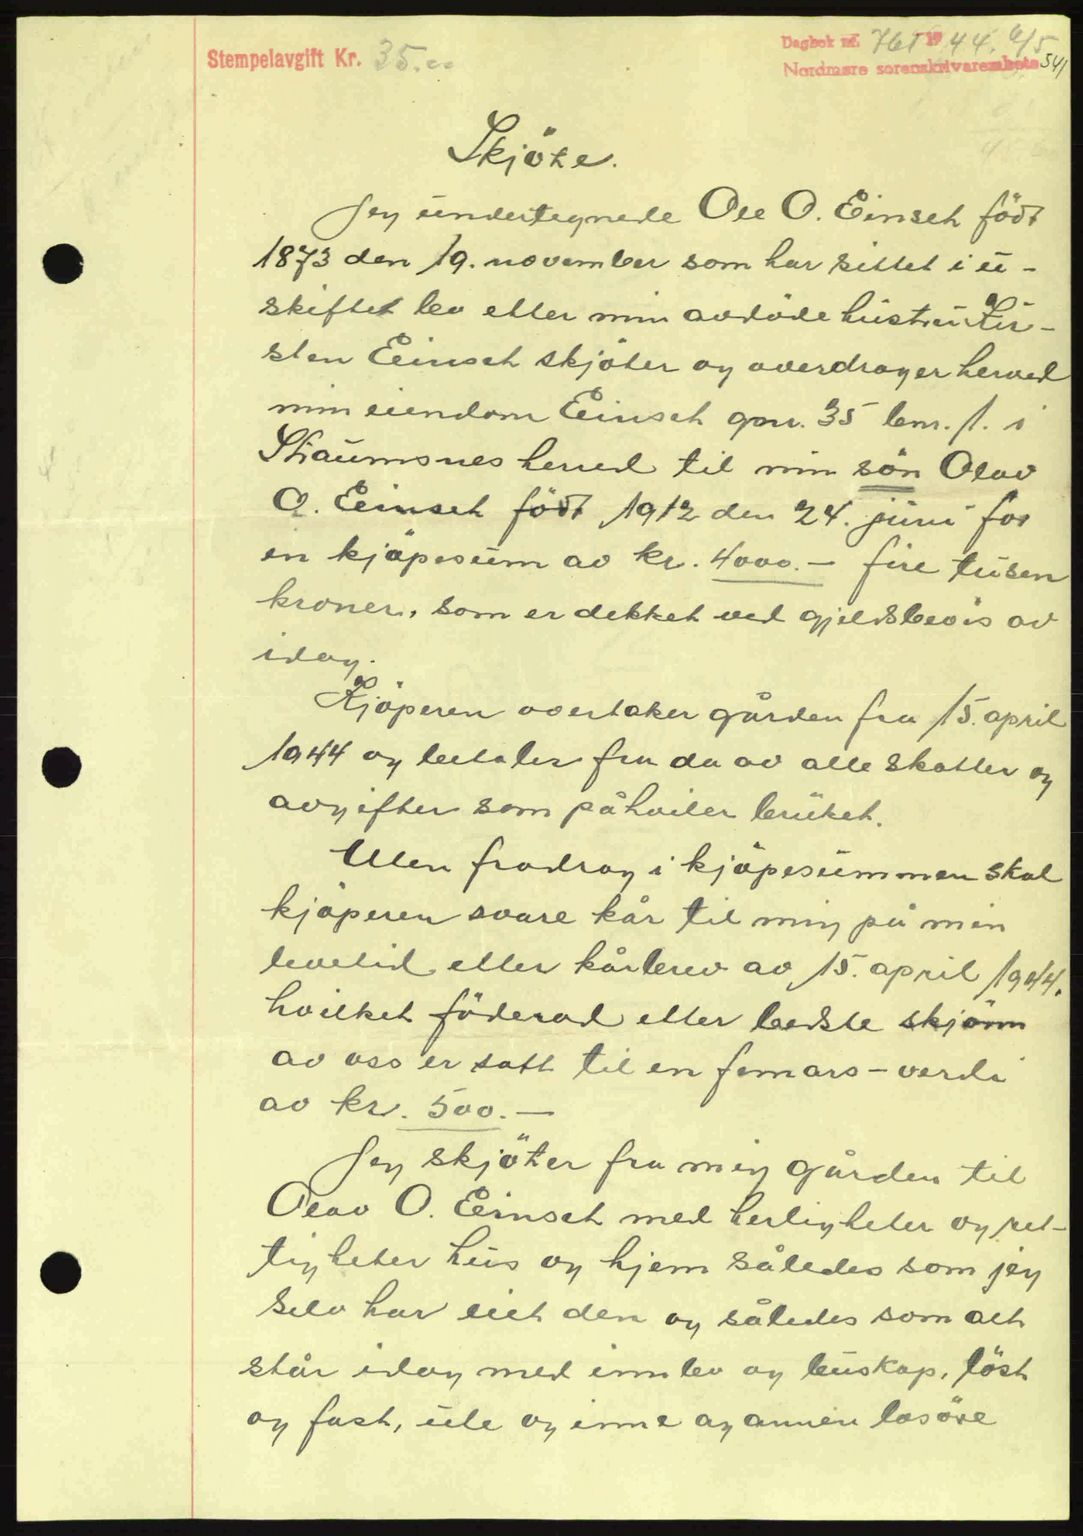 Stempelavgift Kr. 35.00
Dagbok nr. 761 1944. 6/5
Nordmøre sorenskrivarembete 541
Skjöte.
Jeg undertegnede Ole O. Einset födt
1873 den 19. november som har sittet i u-
skiftet bo etter min avdöde hustru Kir-
sten Einset skjöter og overdrager herved
min eiendom Einset gnr. 35 bnr. 1. i
Straumsnes herred til min sön Olav
O. Einset födt 1912 den 24. juni for
en kjöpesum av kr. 4000.- fire tusen
kroner, som er dekket ved gjeldsbevis av
idag.
Kjöperen overtaker gården fra 15. april
1944 og betaler fra da av alle skatter og
avgifter som påhviler bruket.
Uten fradrag i kjöpesummen skal
kjöperen svare kår til mig på min
levetid etter kårbrev av 15. april 1944.
hvilket föderad etter bedste skjönn
av oss er satt til en femårs-verdi
av kr. 500.-
Jeg skjöter fra meg gården til
Olav O. Einset med herligheter og ret-
tigheter hus og hjem således som jeg
selv har eiet den og således som alt
står idag med innbo og buskap, löst
og fast, ute og inne og annen lösöre